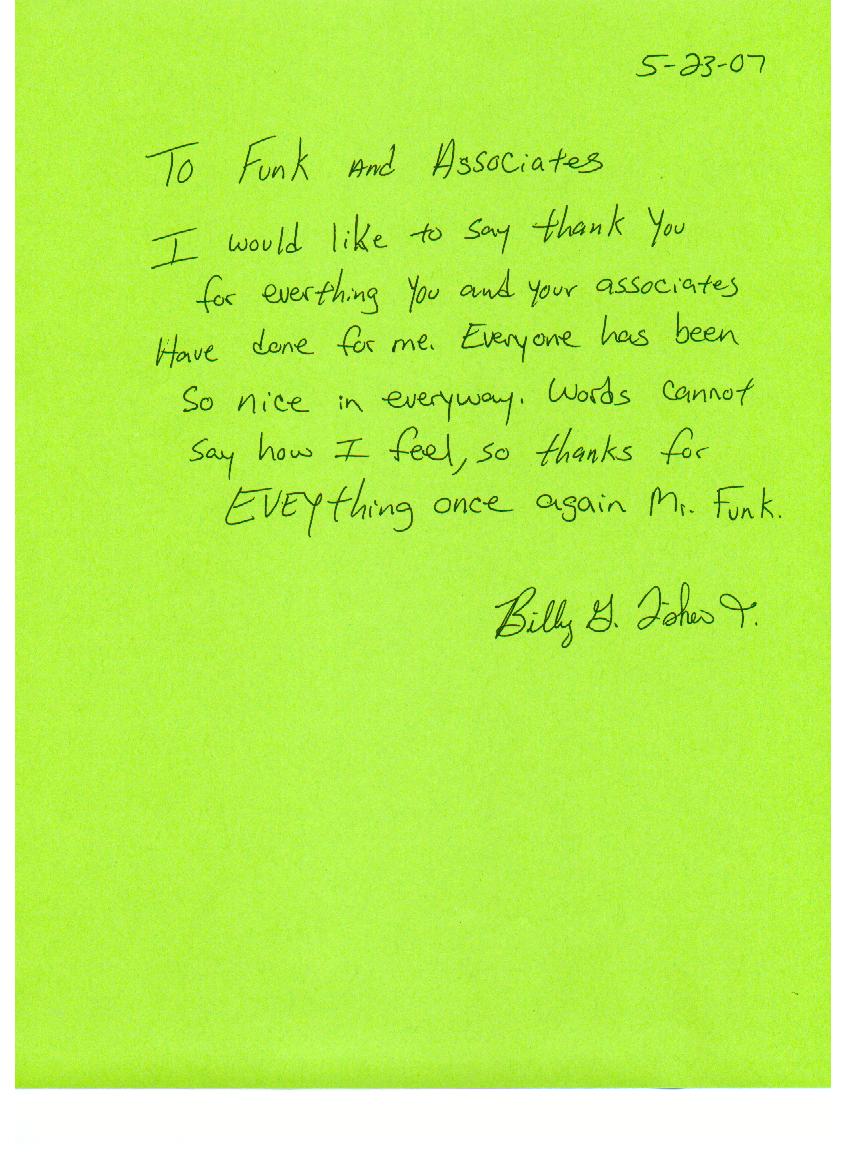 5-23-07
To Funk and Associates
I would like to say thank you
for everthing you and your associates
Have done for me. Everyone has been
so nice in everyway. Words cannot
say how I feel, so thanks for
EVEYthing once again Mr. Funk.
Billy G.